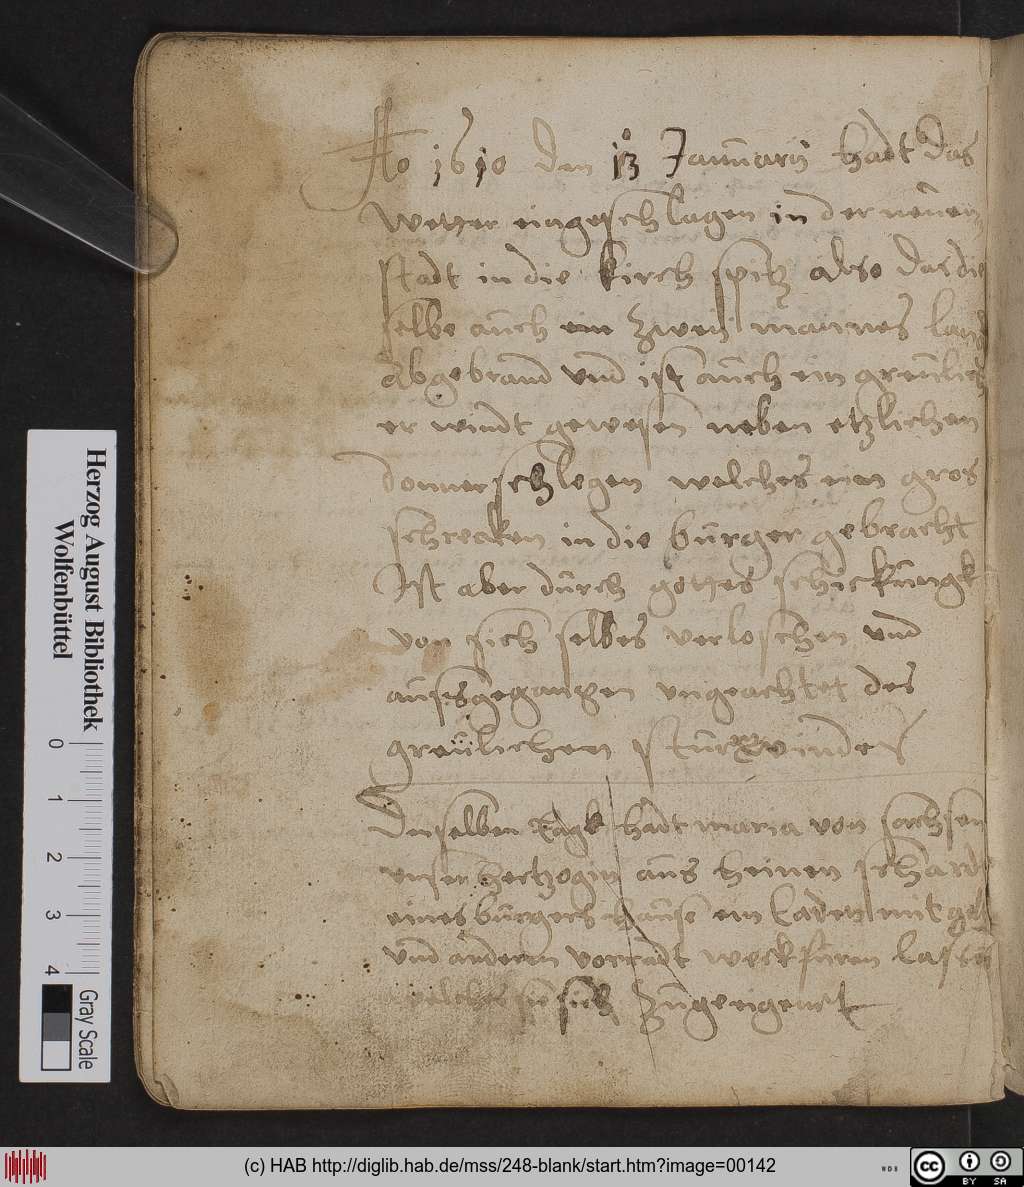 Ao 1610 den 13 Januarij hadt das
wetter eingeschlagen in der neuen
stadt in die kirch spitz also das die
selbe auch ein zweij mannes lang
Abgebrand vnd ist auch ein greulich
er windt gewesen neben etzlichen
donnerschlegen welches ein gros
schrecken in die bürger gebracht
Ist aber durch gottes schickungk
von sich selbes verloschen vnd
ausgegangen vngeachtet des
greulichen sturmwindes
Denselben tagk hadt maria von sachsen
vnser hertzogin aus heinen schard
eines bürgers hause ein laden mit gel
vnd anderen vorradt weckfüren lassen
welches sie sich zugeeigent
Herzog August Bibliothek
Wolfenbüttel
0 1 2 3 4
Gray Scale
(c) HAB http://diglib.hab.de/mss/248-blank/start.htm?image=00142
WDB
cc BY SA